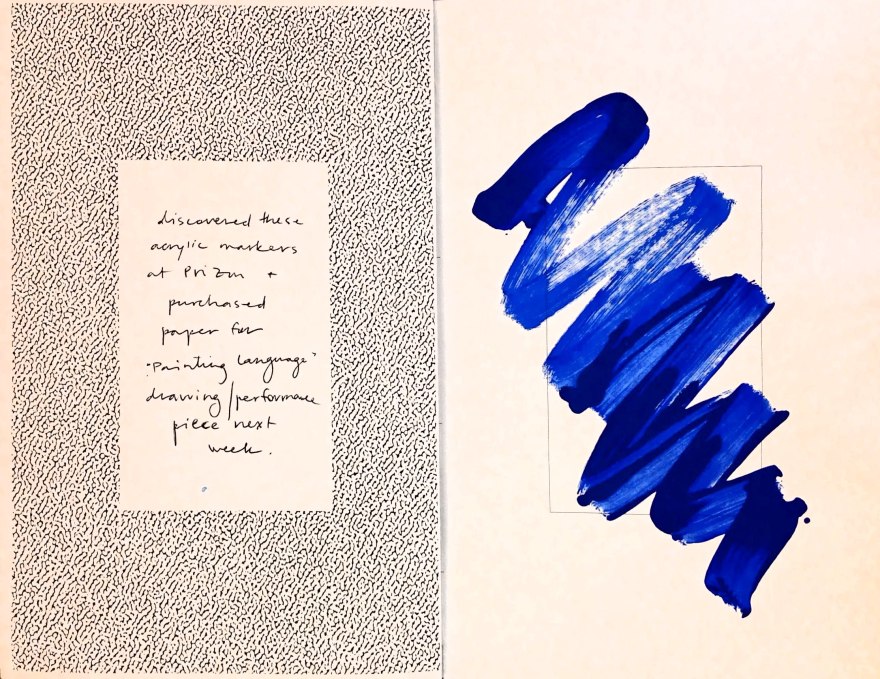 discovered these
acrylic markers
at Prizm +
purchased
paper for
"Painting Language"
drawing/performance
piece next
week.